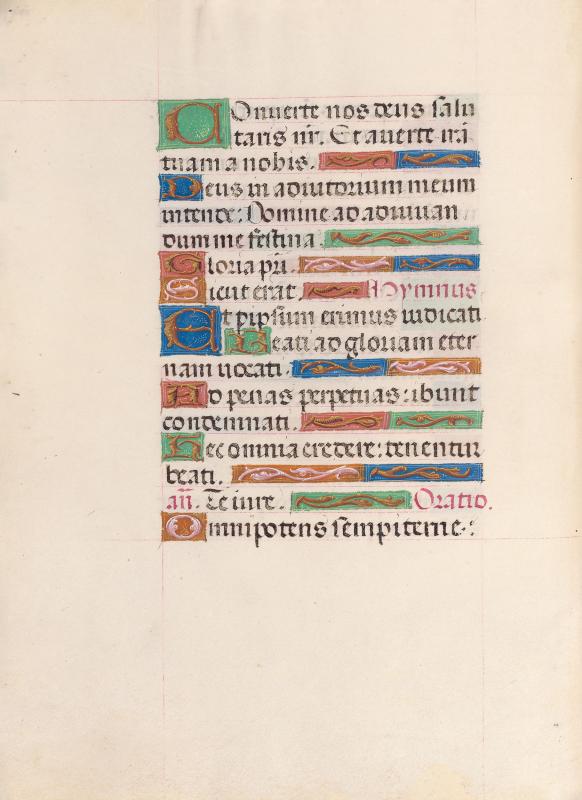 COnuerte nos deus salu
taris nr̄. Et auerte irā
tuam a nobis.
Deus in adiutorium meum
intende: Domine ad adiuuan
dum me festina.
Gloria pri.
Sicut erat. Hymnus
Et p ipsum erimus iudicati
Beati ad gloriam eter
nam uocati.
Ad penas perpetuas: ibunt
condemnati.
Hec omnia credere: tenentur
beati.
añ. Te iure. Oratio.
Omnipotens sempiterne: